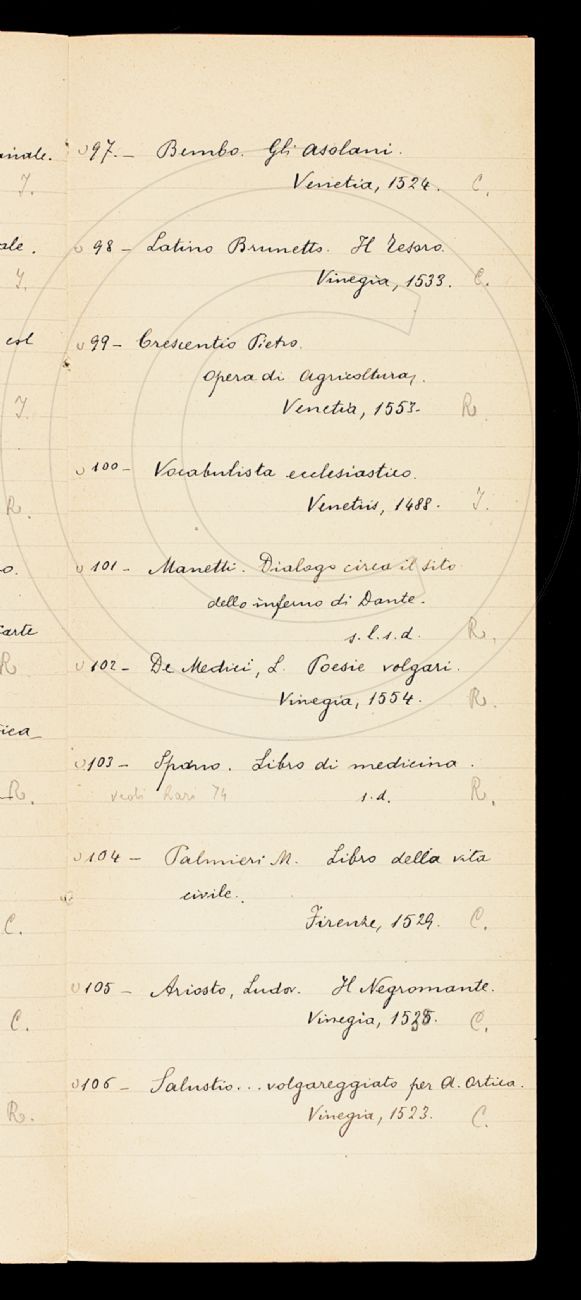 anale.
J.
ale.
J.
est
J.
R.
o.
arte
R
ica_
R.
C.
C.
R.
97. – Bembo. Gli Asolani.
Venetia, 1524. C.
98 – Latino Brunetto. Il Tesoro.
Vinegia, 1533. C.
99 – Crescentio Pietro.
Opera di Agricoltura.
Venetia, 1553. R.
100 – Vocabulista ecclesiastico.
Venetiis, 1488. J.
101 – Manetti. Dialogo circa il sito
dello inferno di Dante.
s. l. s. d. R.
102 – De Medici, L. Poesie volgari.
Vinegia, 1554. R.
103 – Spano. Libro di medicina.
vedi Rari 74 s. d. R.
104 – Palmieri M. Libro della vita
civile.
Firenze, 1529. C.
105 – Ariosto, Ludov. Il Negromante.
Vinegia, C.
106 – Salustio... volgareggiato per A. Ortica.
Vinegia, 1523. C.